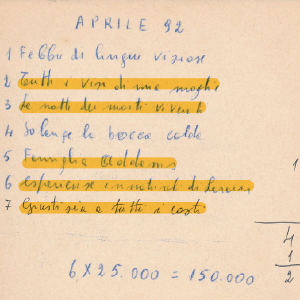 APRILE 92
1 Febbre di lingue viziose
2 Tutti i vizi di mia moglie
3 La notte dei morti viventi
4 Solange la bocca calda
5 Famiglia Addams
6 esperienze di
7 Giustizia a tutti i costi
1
4
1
2
6 X 25.000 = 150.000